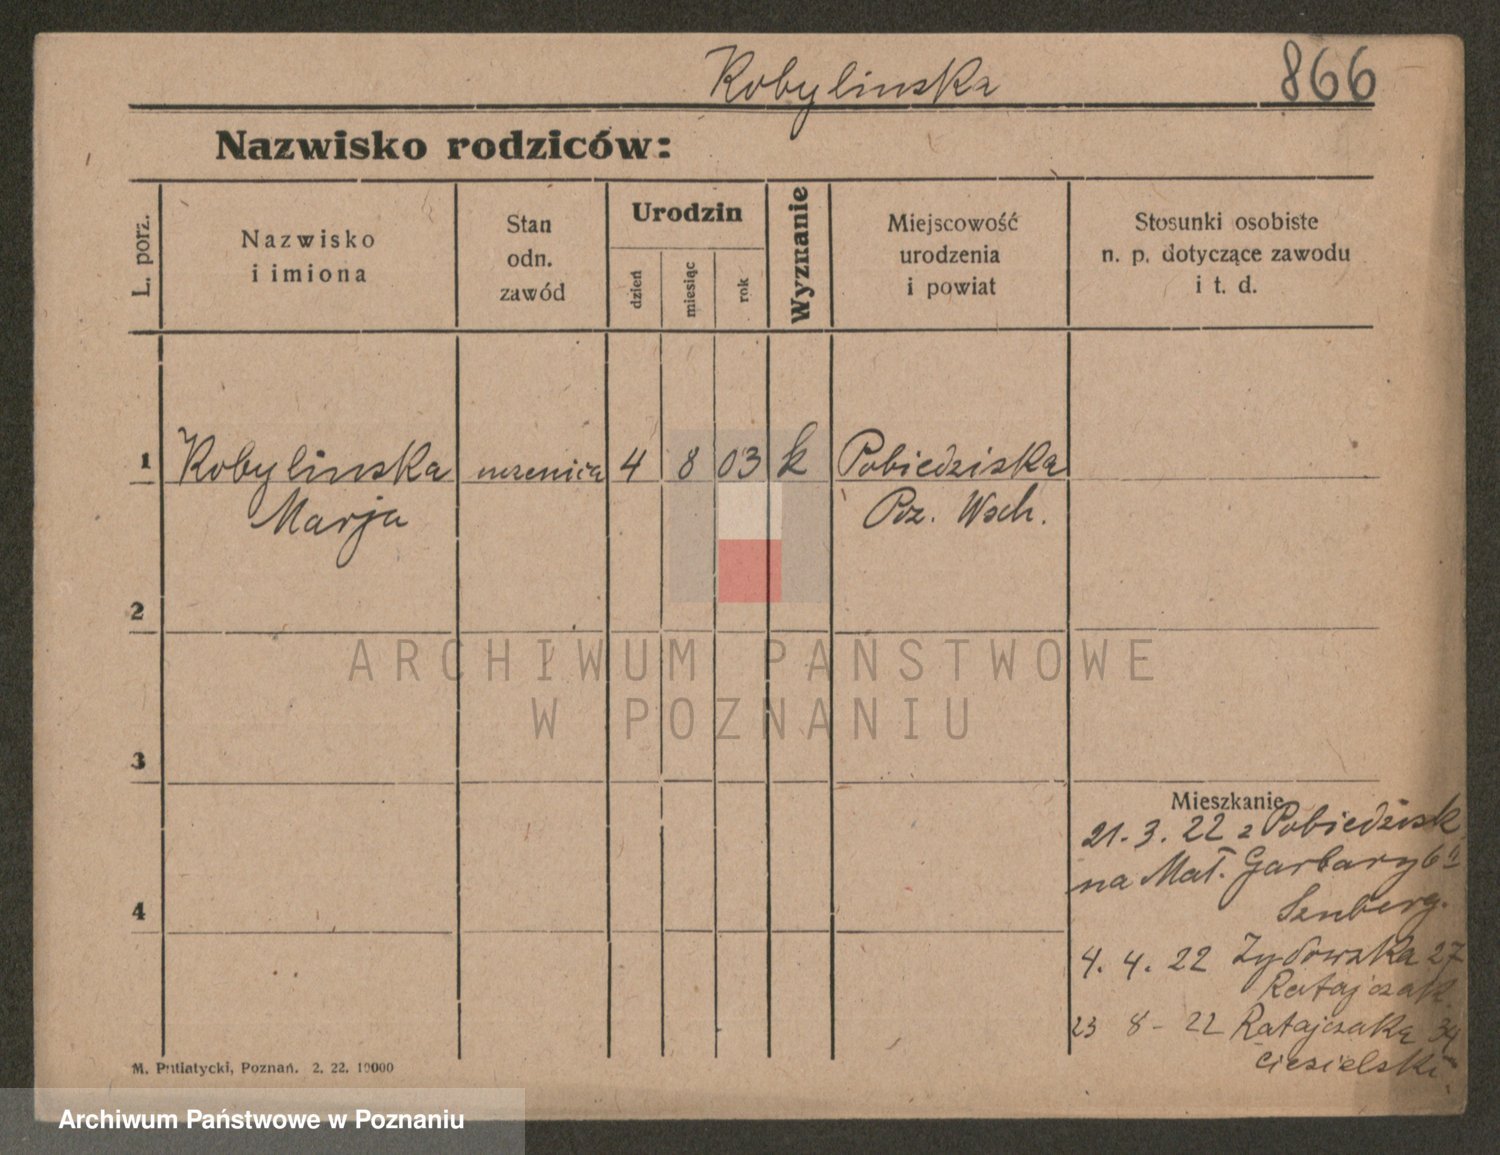 Kobylinska 866
Nazwisko rodziców:
L. porz.
Nazwisko
i imiona
Stan
odn.
zawód
Urodzin
dzień
miesiąc
rok
Wyznanie
Miejscowość
urodzenia
i powiat
Stosunki osobiste
n. p. dotyczące zawodu
i t. d.
1 Kobylinska uczenica 4 8 03 k Pobiedziska
Marja Poz. Wsch.
2
ARCHIWUM PAŃSTWOWE
W POZNANIU
3
Mieszkanie
21. 3. 22 z Pobiedzisk
na Mał. Garbary 6a
4
4. 4. 22 Zydowska 27
Ratajczak.
23 8 - 22 Ratajczaka 34
Ciesielski.
M. Putiatycki, Poznań. 2. 22. 10000
Archiwum Państwowe w Poznaniu